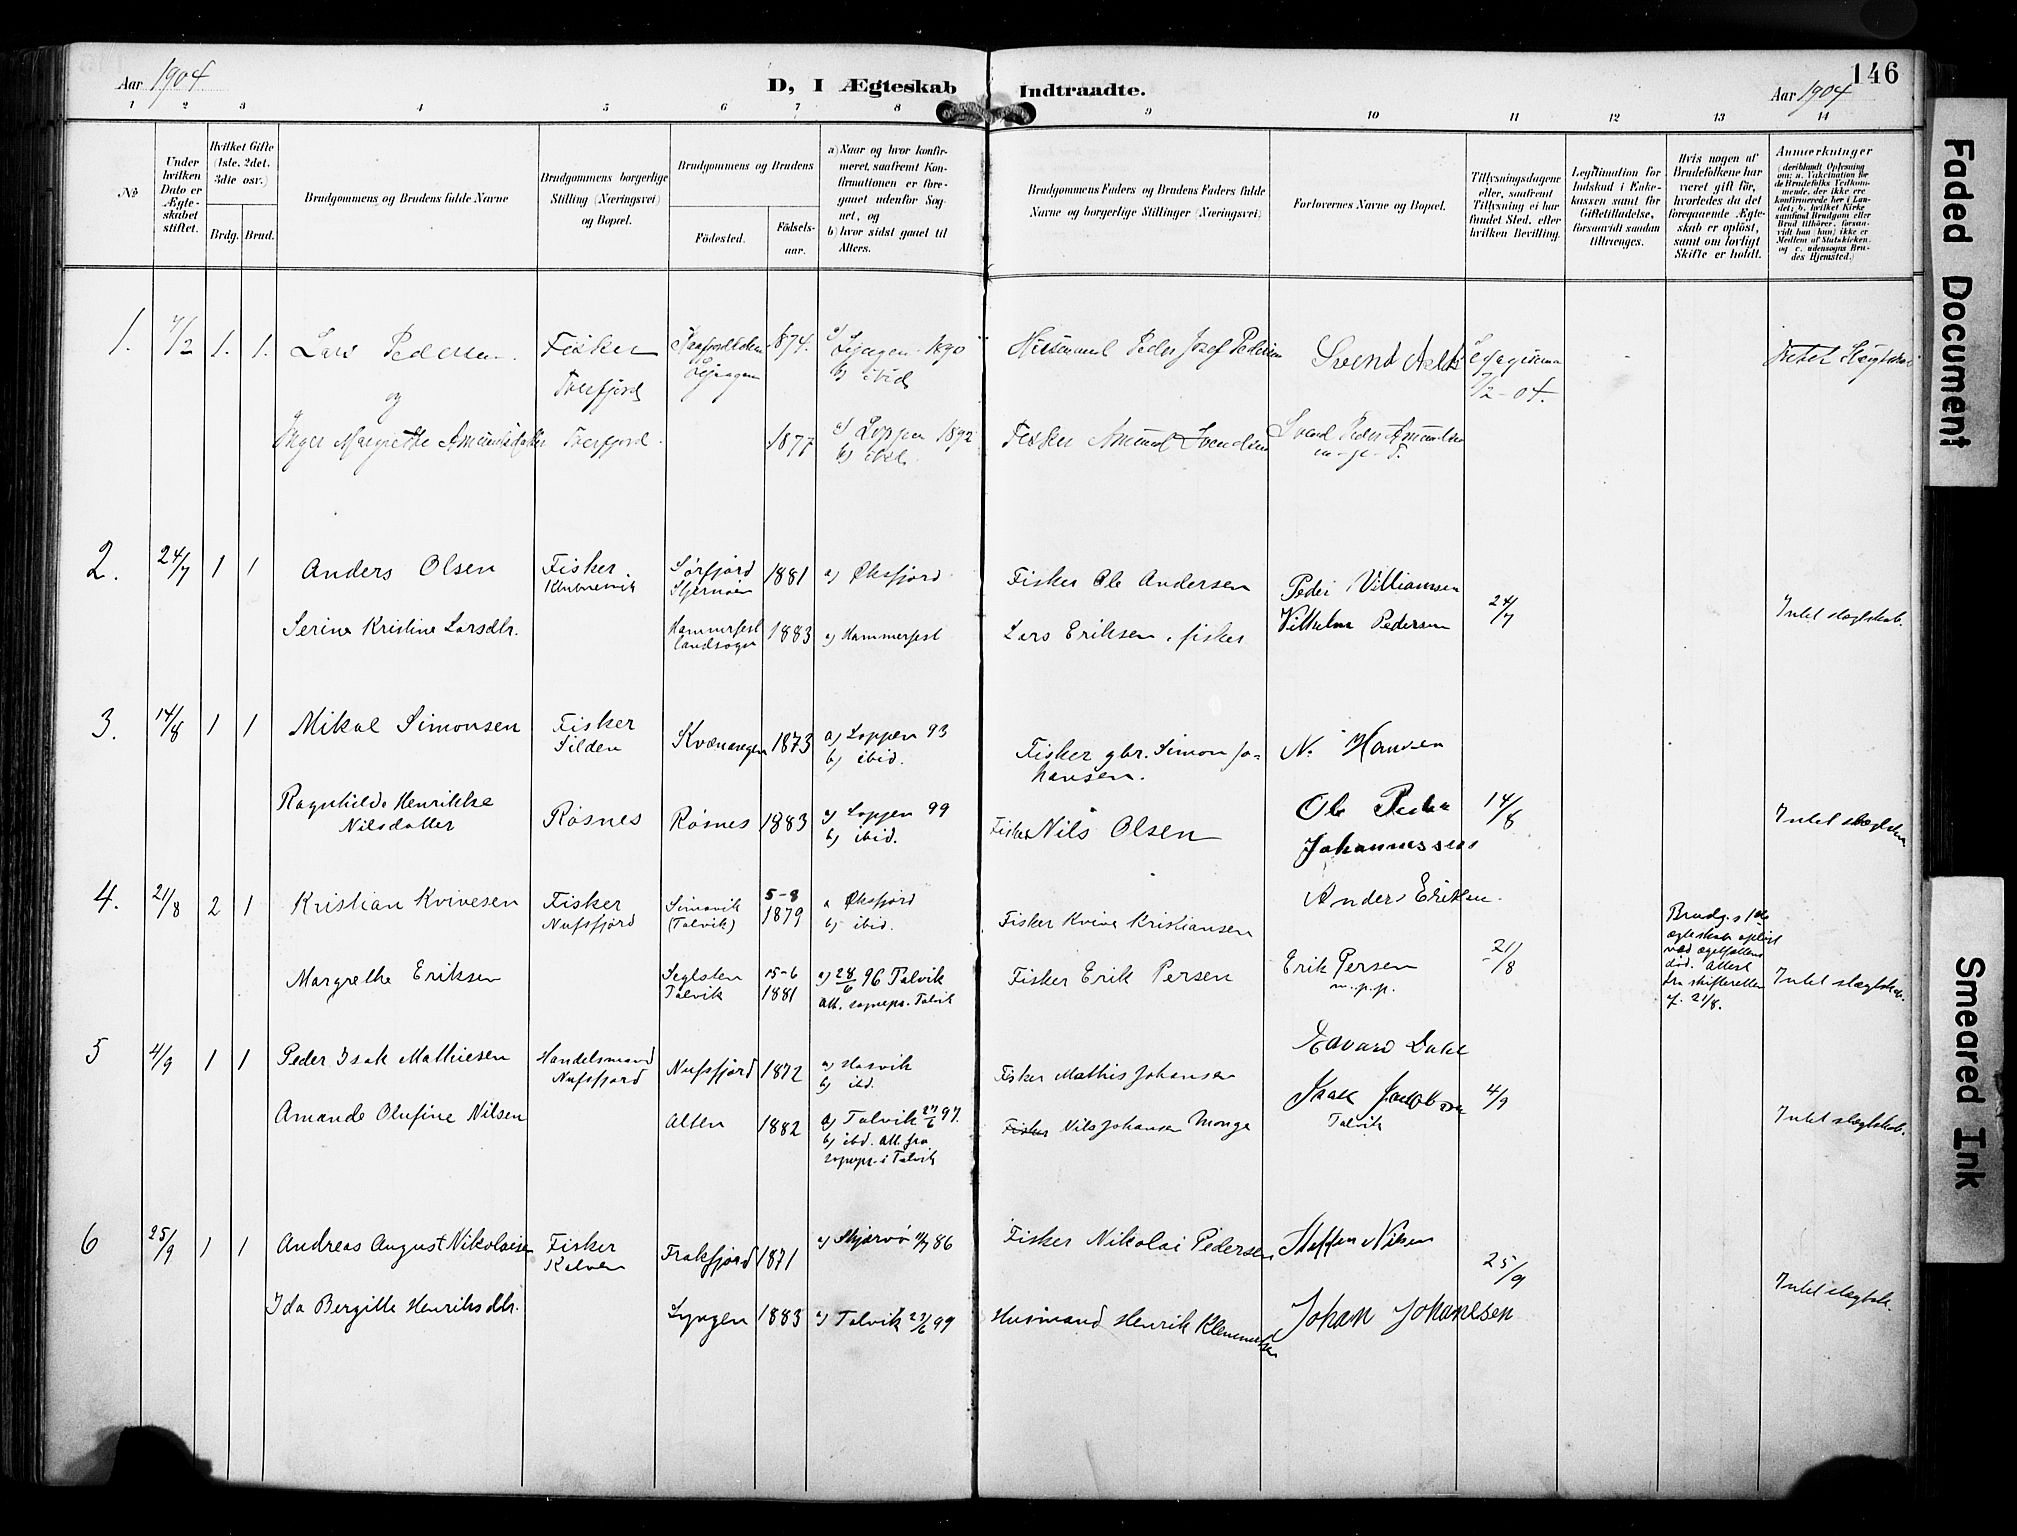 Aar 1904.
D, I Ægteskab Indtraadte.
Aar 1904
146
1 2 3 4 5 6 7 8 9 10 11 12 13 14
No
Under hvilken Dato er Ægteskabet stiftet.
Hvilket Gifte (1ste, 2det, 3die osv.)
Brdg. Brud.
Brudgommens og Brudens fulde Navne
Brudgommens borgerlige Stilling (Næringsvei) og Bopæl.
Brudgommens og Brudens
Fødested.
Fødselsaar.
a) Naar og hvor konfirmeret, saafremt Konfirmationen er foregaaet udenfor Sognet, og
b) hvor sidst gaaet til Alters.
Brudgommens Faders og Brudens Faders fulde Navne og borgerlige Stillinger (Næringsvei)
Forlovernes Navne og Bopæl.
Tillysningsdagene eller, saafremt Tillysning ei har fundet Sted, efter hvilken Bevilling.
Legitimation for Indskud i Enkekassen samt for Giftetilladelse, forsaavidt saadan tiltrænges.
Hvis nogen af Brudefolkene har været gift før, hvorledes da det foregaaende Ægteskab er opløst, samt om lovligt Skifte er holdt.
Anmærkninger
1. 7/2 1. 1. Lars Pedersen Fisker 1874. a) Lyngen 1890 Husmand Peder Josef Pedersen 7/2-04. Intet Slægtskab
og
b) ibid
Inger Margrethe Amundsdatter 1877 a) Loppen 1892 Fisker Amund Svendsen Svend Peder Amundsen
b) ibid. m-p-
2. 24/7 1 1 Anders Olsen Fisker Sørfjord Stjernøen 1881 a) Øksfjord Fisker Ole Andersen Peder Villiamsen 24/7 Intet slægtskab.
Serine Kristine Larsdtr. Hammerfest landsogn 1883 a) Hammerfest Lars Eriksen, fisker Vilhelm Pedersen
3. 14/8 1 1 Mikal Simonsen Fisker Silden Kvænangen 1873 a) Loppen 93 b) ibid. Fisker gbr. Simon Johansen. N. Hansen
Ragnhilda Henrikke Nilsdatter Røsnes Røsnes 1883 a) Loppen 99 b) ibid. Fisker Nils Olsen Ole Peder Johannessen 14/8 Intet
4. 21/8 2 1 Kristian Kvivesen Fisker Nufsfjord Simavik (Talvik) 5-8 1879 a Øksfjord b) ibid. Fisker Kvive Kristiansen Anders Eriksen. 21/8
Margrethe Eriksen Seglsten Talvik 15-6 1881 a) 28/6 96 Talvik Att. sognepr. Talvik Fisker Erik Persen Erik Persen m.p.p. Intet slægtskab.
Att. fra skifteretten af 21/8.
5 4/9 1 1 Peder Isak Mathiesen Handelsmand Nufsfjord Nufsfjord 1872 a) Hasvik b) ibd. Fisker Mathis Johansen Edvard Dahl 4/9
Amanda Olufine Nilsen Alten 1882 a) Talvik 27/6 97. b) ibd. Att. fra sognepr. i Talvik Fisker Nils Johansen Monge Isak Talvik Intet slægtskab.
6 25/9 1 1 Andreas August Nikolaisen Fisker Kalven Frakfjord 1871 a) Skjervø 86 Fisker Nikolai Pedersen Steffen Nilsen 25/9
Ida Bergitte Henriksdtr. Lyngen 1883 a) Talvik 25/6 99 Husmand Henrik Klemmetsen Johan Johansen Intet slægtsk.
Faded Document
Smeared Ink